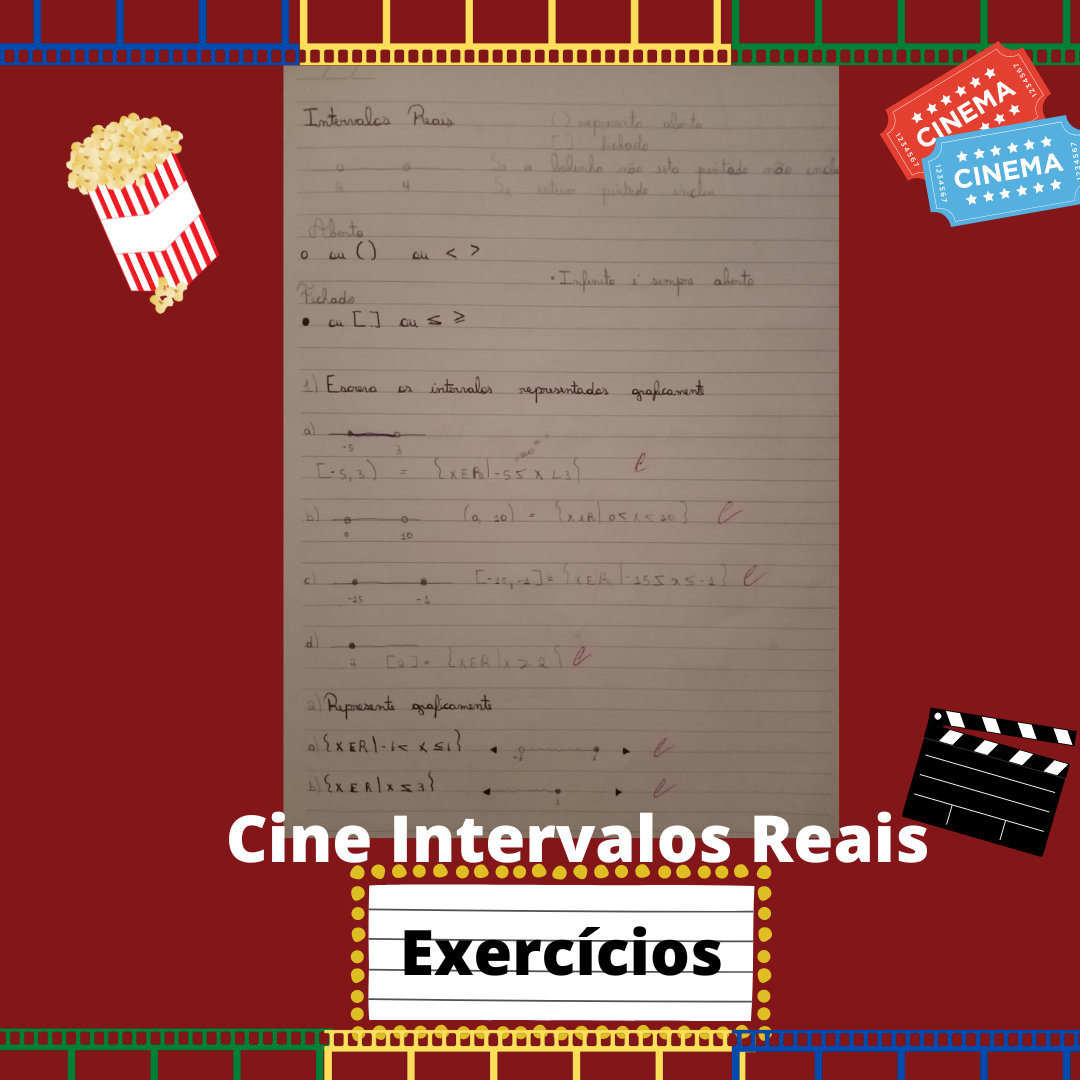 CINEMA
1234567
1234567
CINEMA
1234567
1234567
Intervalos Reais
( ) representa aberto
[ ] fechado
Se a bolinha não está pintada não inclu
2 4
Se estiver pintado inclui
Aberto
o ou ( ) ou < >
• Infinito é sempre aberto
Fechado
• ou [ ] ou ≤ ≥
1) Escreva os intervalos representados graficament
a)
-5 3
[-5, 3) = {x E R | -5 ≤ x < 3} C
b) (0, 10) = {x E R | 0 < x < 10} C
0 10
c) [-15, -1] = {x E R | -15 ≤ x ≤ -1} C
-15 -1
d)
2 [2] = {x E R | x ≥ 2} C
2) Represente graficamente
a) {x E R | -1 < x ≤ 1} -1 1 C
b) {x E R | x ≤ 3} C
3
Cine Intervalos Reais
Exercícios